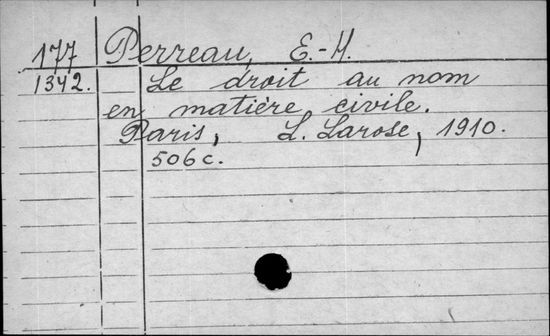 177 Perreau, E.-H.
1342. Le droit au nom
en matière civile.
Paris, L. Larose, 1910.
506 c.